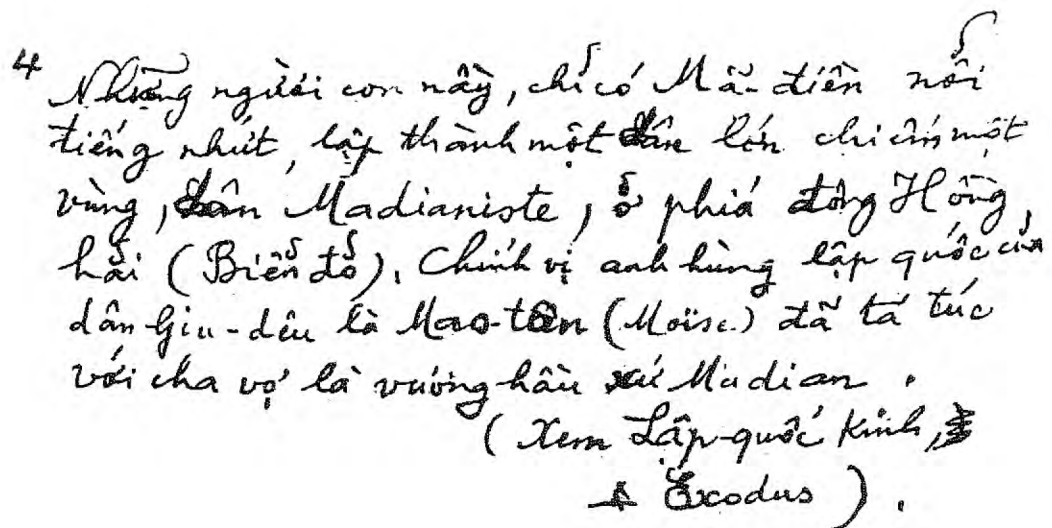 4 Những người con nầy, chỉ có Mã-điên nổi
tiếng nhứt, lập thành một dân lớn chiếm một
vùng, dân Madianiste, ở phiá đông Hồng,
hải (Biển đỏ). Chính vị anh hùng lập quốc của
dân Giu-dêu là Mao-tôn (Moïse) đã tá túc
với cha vợ là vương-hầu xứ Madian.
(Xem Lập-quốc Kinh,
Exodus).